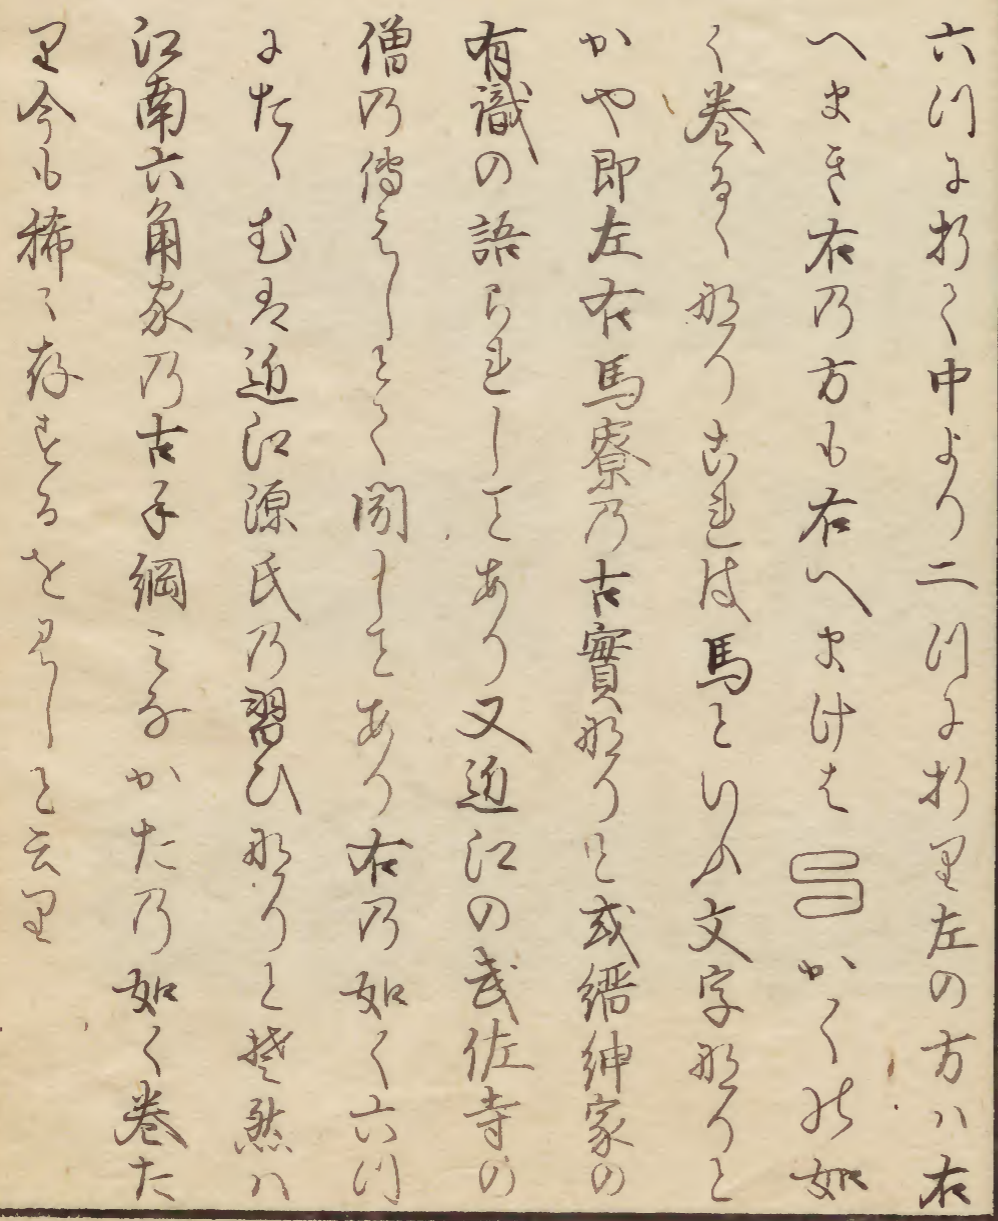 六川に折て中より二川に折り左の方ハ右
へまき右の方も右へまけはかくの如
く巻るゝ那りこれは馬といふ文字那りと
かや即左右馬寮乃古實那りと或縉紳家の
有識の語られしことあり又近江の武佐寺の
僧乃傳えしとて聞しことあり右乃如く六川
にたゝむは近江源氏乃習ひ那りと然ハ
江南六角家乃古手綱みなかた乃如く巻た
り今も稀に存するを見しと云り